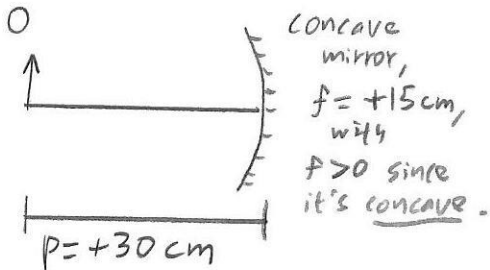 O
concave
mirror,
f = +15cm,
with
f > 0 since
it's concave.
p = +30 cm